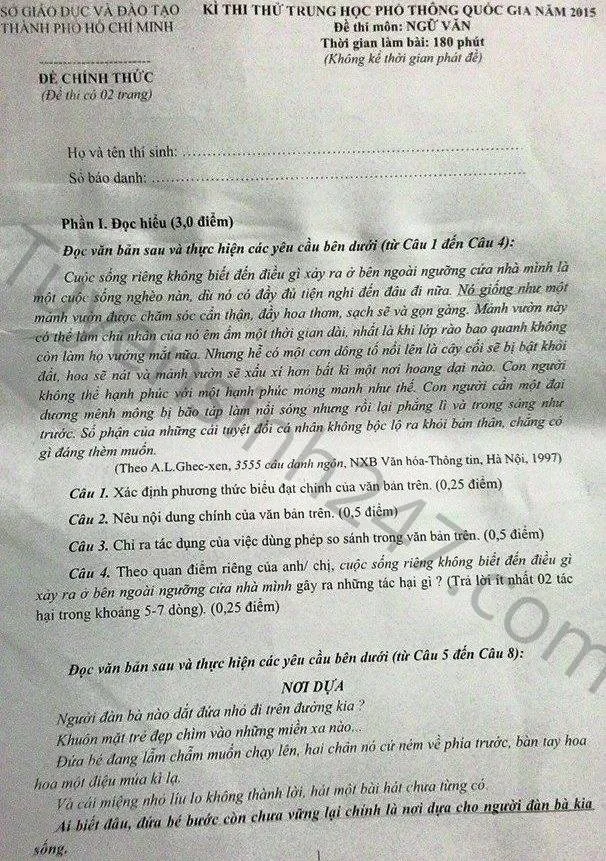 SỞ GIÁO DỤC VÀ ĐÀO TẠO
THÀNH PHỐ HỒ CHÍ MINH
KÌ THI THỬ TRUNG HỌC PHỔ THÔNG QUỐC GIA NĂM 2015
Đề thi môn: NGỮ VĂN
Thời gian làm bài: 180 phút
(Không kể thời gian phát đề)
ĐỀ CHÍNH THỨC
(Đề thi có 02 trang)
Họ và tên thí sinh:
Số báo danh:
Phần I. Đọc hiểu (3,0 điểm)
Đọc văn bản sau và thực hiện các yêu cầu bên dưới (từ Câu 1 đến Câu 4):
Cuộc sống riêng không biết đến điều gì xảy ra ở bên ngoài ngưỡng cửa nhà mình là
một cuộc sống nghèo nàn, dù nó có đầy đủ tiện nghi đến đâu đi nữa. Nó giống như một
mảnh vườn được chăm sóc cẩn thận, đầy hoa thơm, sạch sẽ và gọn gàng. Mảnh vườn này
có thể làm chủ nhân của nó êm ấm một thời gian dài, nhất là khi lớp rào bao quanh không
còn làm họ vướng mắt nữa. Nhưng hễ có một cơn dông tố nổi lên là cây cối sẽ bị bật khỏi
đất, hoa sẽ nát và mảnh vườn sẽ xấu xí hơn bất kì một nơi hoang dại nào. Con người
không thể hạnh phúc với một hạnh phúc mỏng manh như thế. Con người cần một đại
dương mênh mông bị bão táp làm nổi sóng nhưng rồi lại phẳng lì và trong sáng như
trước. Số phận của những cái tuyệt đối cá nhân không bộc lộ ra khỏi bản thân, chẳng có
gì đáng thèm muốn.
(Theo A.L.Ghec-xen, 3555 câu danh ngôn, NXB Văn hóa-Thông tin, Hà Nội, 1997)
Câu 1. Xác định phương thức biểu đạt chính của văn bản trên. (0,25 điểm)
Câu 2. Nêu nội dung chính của văn bản trên. (0,5 điểm)
Câu 3. Chỉ ra tác dụng của việc dùng phép so sánh trong văn bản trên. (0,5 điểm)
Câu 4. Theo quan điểm riêng của anh/ chị, cuộc sống riêng không biết đến điều gì
xảy ra ở bên ngoài ngưỡng cửa nhà mình gây ra những tác hại gì ? (Trả lời ít nhất 02 tác
hại trong khoảng 5-7 dòng). (0,25 điểm)
Đọc văn bản sau và thực hiện các yêu cầu bên dưới (từ Câu 5 đến Câu 8):
NƠI DỰA
Người đàn bà nào dắt đứa nhỏ đi trên đường kia ?
Khuôn mặt trẻ đẹp chìm vào những miền xa nào...
Đứa bé đang lẫm chẫm muốn chạy lên, hai chân nó cứ ném về phía trước, bàn tay hoa
hoa một điệu múa kì lạ.
Và cái miệng nhỏ líu lo không thành lời, hát một bài hát chưa từng có.
Ai biết đâu, đứa bé bước còn chưa vững lại chính là nơi dựa cho người đàn bà kia
sống.
Tuyensinh247.com